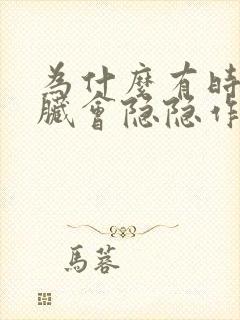 為什麼有時
臟會隐隐作
馬蓉